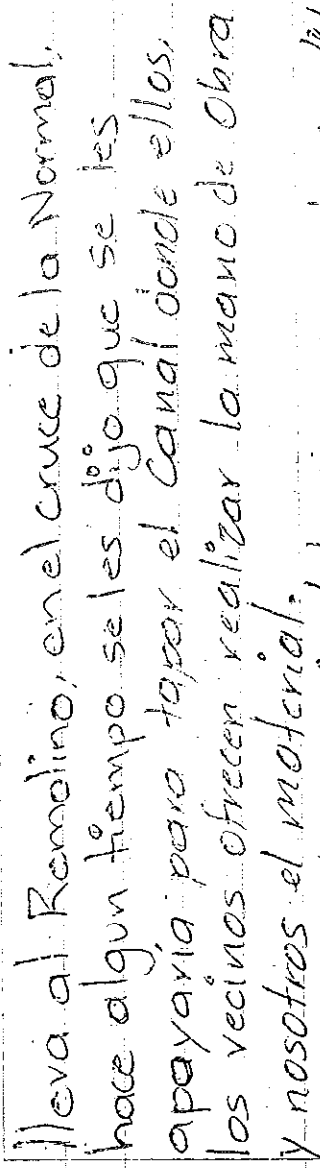 lleva al Remolino, en el cruce de la Normal,
hace algun tiempo se les dijo que se les
apoyaría para tapar el Canal donde ellos,
los vecinos ofrecen realizar la mano de Obra
y nosotros el material.